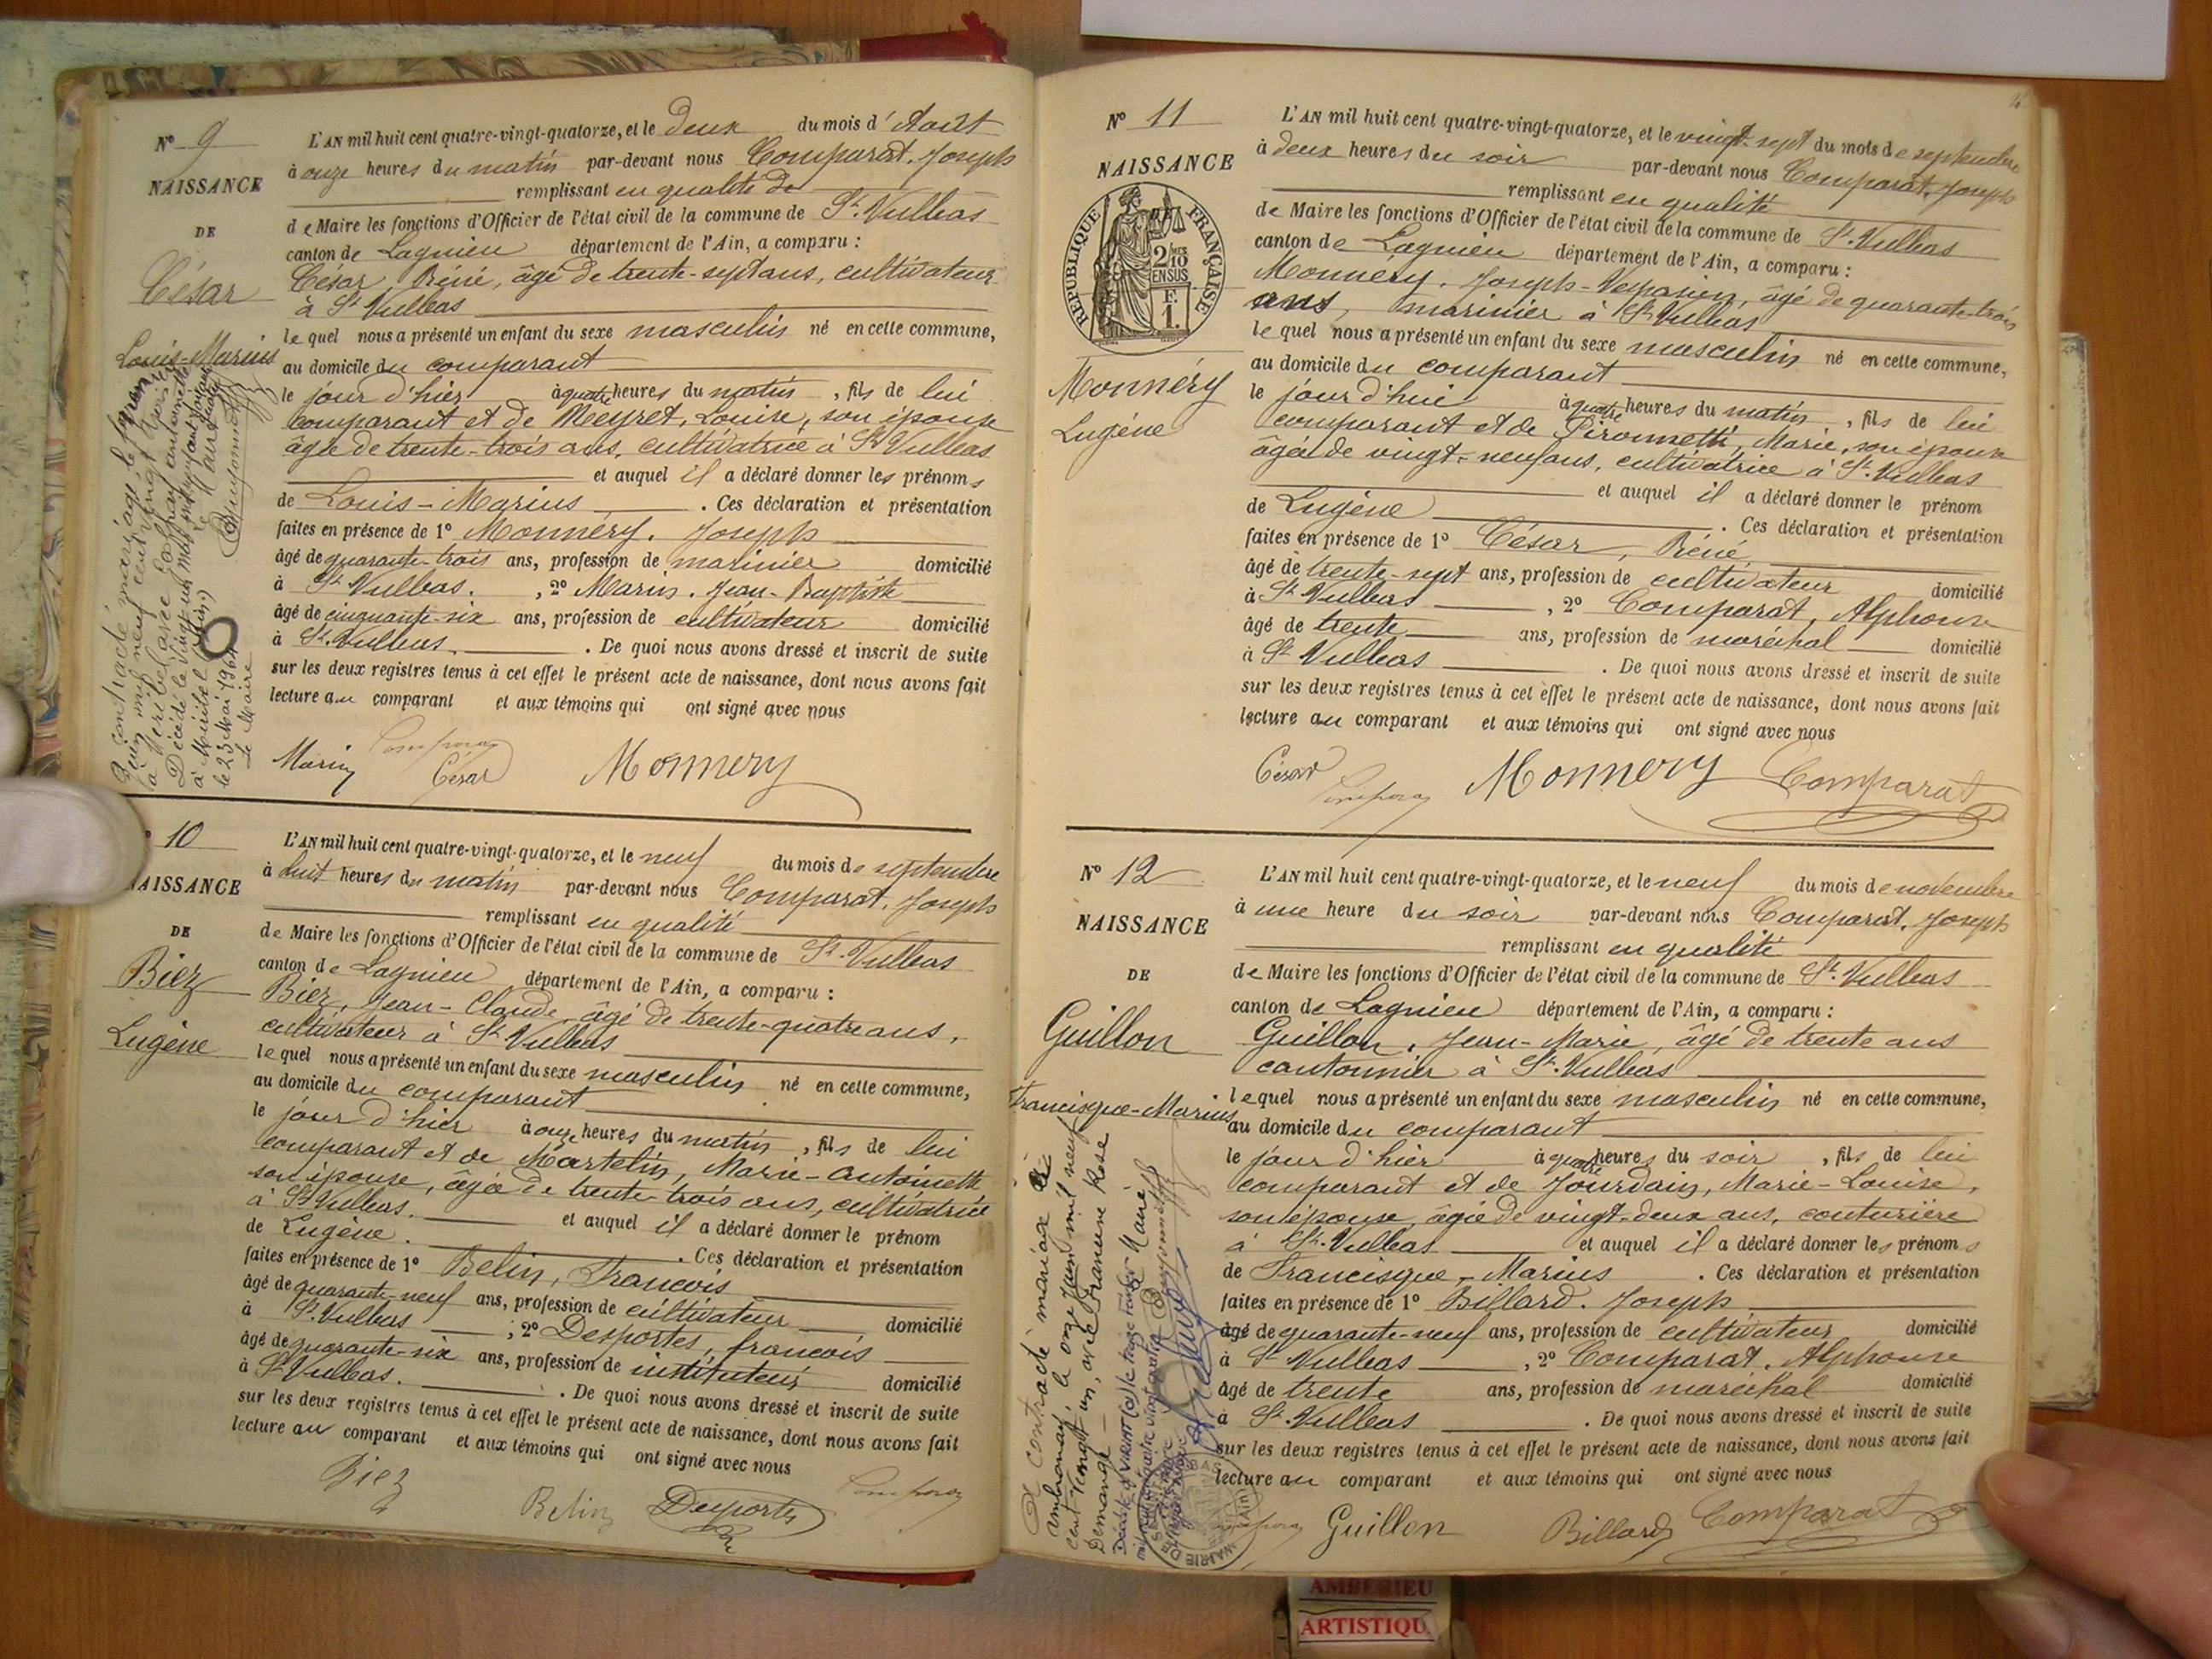 N° 9
NAISSANCE
DE
César
Louis-Marius
L'AN mil huit cent quatre-vingt-quatorze, et le deux du mois d'Août
à onze heures du matin par-devant nous Comparat, Joseph
remplissant en qualité de
de Maire les fonctions d'Officier de l'état civil de la commune de St. Vulbas
canton de Lagnieu département de l'Ain, a comparu :
César, Réné, âgé de trente-sept ans, cultivateur
à St Vulbas
lequel nous a présenté un enfant du sexe masculin né en cette commune,
au domicile du comparant
le jour d'hier à quatre heures du matin, fils de lui
comparant et de Meyret, Louise, son épouse
âgée de trente-trois ans, cultivatrice à St Vulbas
et auquel il a déclaré donner les prénoms
de Louis-Marius. Ces déclaration et présentation
faites en présence de 1° Monnéry, Joseph
âgé de quarante-trois ans, profession de marinier domicilié
à St Vulbas. , 2° Marin, Jean-Baptiste
âgé de cinquante-six ans, profession de cultivateur domicilié
à St. Vulbas. . De quoi nous avons dressé et inscrit de suite
sur les deux registres tenus à cet effet le présent acte de naissance, dont nous avons fait
lecture au comparant et aux témoins qui ont signé avec nous
Marin Comparat César Monnery
A contracté mariage le
juin mil neuf cent vingt trois
à Miribel avec
Décédé le vingt-un mai
à Miribel (Ain)
le 23 Mai 1964
Le Maire
10
NAISSANCE
DE
Biez
Eugène
L'AN mil huit cent quatre-vingt-quatorze, et le neuf du mois de septembre
à huit heures du matin par-devant nous Comparat, Joseph
remplissant en qualité
de Maire les fonctions d'Officier de l'état civil de la commune de St. Vulbas
canton de Lagnieu département de l'Ain, a comparu :
Biez, Jean-Claude, âgé de trente-quatre ans,
cultivateur à St Vulbas
lequel nous a présenté un enfant du sexe masculin né en cette commune,
au domicile du comparant
le jour d'hier à onze heures du matin, fils de lui
comparant et de Martelin, Marie-Antoinette
son épouse, âgée de trente-trois ans, cultivatrice
à St Vulbas. et auquel il a déclaré donner le prénom
de Eugène. . Ces déclaration et présentation
faites en présence de 1° Belin, François
âgé de quarante-neuf ans, profession de cultivateur domicilié
à St. Vulbas ; 2° Desportes, françois
âgé de quarante-six ans, profession de instituteur domicilié
à St Vulbas. . De quoi nous avons dressé et inscrit de suite
sur les deux registres tenus à cet effet le présent acte de naissance, dont nous avons fait
lecture au comparant et aux témoins qui ont signé avec nous
Biez Belin Desportes Comparat
N° 11
NAISSANCE
DE
REPUBLIQUE FRANÇAISE
2 MES 10 EN SUS
F. 1.
Monnéry
Eugène
L'AN mil huit cent quatre-vingt-quatorze, et le vingt-sept du mois de septembre
à deux heures du soir par-devant nous Comparat, Joseph
remplissant en qualité
de Maire les fonctions d'Officier de l'état civil de la commune de St. Vulbas
canton de Lagnieu département de l'Ain, a comparu :
Monnéry, Joseph-Vespasien, âgé de quarante-trois
ans, marinier à St Vulbas
lequel nous a présenté un enfant du sexe masculin né en cette commune,
au domicile du comparant
le jour d'hui à quatre heures du matin, fils de lui
comparant et de Pironnetti, Marie, son épouse
âgée de vingt-neuf ans, cultivatrice à St. Vulbas
et auquel il a déclaré donner le prénom
de Eugène . Ces déclaration et présentation
faites en présence de 1° César, Réné
âgé de trente-sept ans, profession de cultivateur domicilié
à St Vulbas , 2° Comparat, Alphonse
âgé de trente ans, profession de maréchal domicilié
à St Vulbas . De quoi nous avons dressé et inscrit de suite
sur les deux registres tenus à cet effet le présent acte de naissance, dont nous avons fait
lecture au comparant et aux témoins qui ont signé avec nous
César Comparat Monnery Comparat
N° 12
NAISSANCE
DE
Guillon
Francisque-Marius
L'AN mil huit cent quatre-vingt-quatorze, et le neuf du mois de novembre
à une heure du soir par-devant nous Comparat, Joseph
remplissant en qualité
de Maire les fonctions d'Officier de l'état civil de la commune de St. Vulbas
canton de Lagnieu département de l'Ain, a comparu :
Guillon, Jean-Marie, âgé de trente ans
cantonnier à St. Vulbas
lequel nous a présenté un enfant du sexe masculin né en cette commune,
au domicile du comparant
le jour d'hier à quatre heures du soir, fils de lui
comparant et de Jourdain, Marie-Louise,
son épouse, âgée de vingt-deux ans, couturière
à St. Vulbas et auquel il a déclaré donner les prénoms
de Francisque-Marius . Ces déclaration et présentation
faites en présence de 1° Billard, Joseph
âgé de quarante-neuf ans, profession de cultivateur domicilié
à St Vulbas , 2° Comparat, Alphonse
âgé de trente ans, profession de maréchal domicilié
à St. Vulbas . De quoi nous avons dressé et inscrit de suite
sur les deux registres tenus à cet effet le présent acte de naissance, dont nous avons fait
lecture au comparant et aux témoins qui ont signé avec nous
Comparat Guillon Billard Comparat
A contracté mariage à
Ambronay, le onze juin mil neuf
cent vingt-un, avec
Demange
Décédé à VIRIAT (01) le treize
MAIRIE DE (Ain)
AMBERIEU
ARTISTIQU